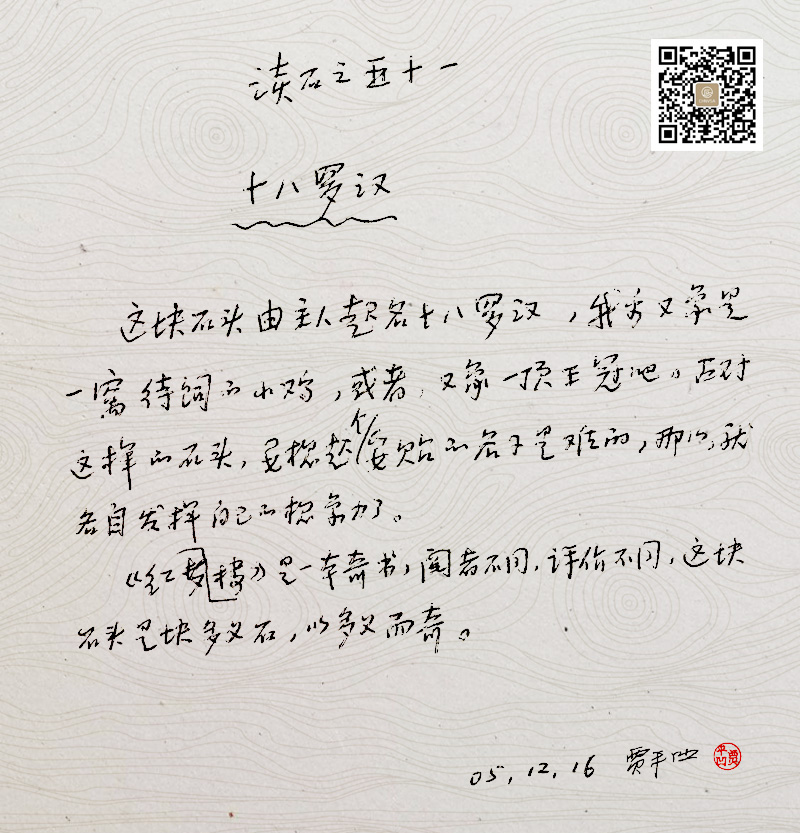 读石之五十一
十八罗汉
这块石头由主人起名十八罗汉，我看又象是
一窝待饲的小鸡，或者，又象一顶王冠吧。面对
这样的石头，要想起个妥贴的名字是难的，那么，就
各自发挥自己的想象力了。
《红楼梦》是一本奇书，阅者不同，评价不同，这块
石头是块多义石，以多义而奇。
05.12.16 贾平凹
贾平凹